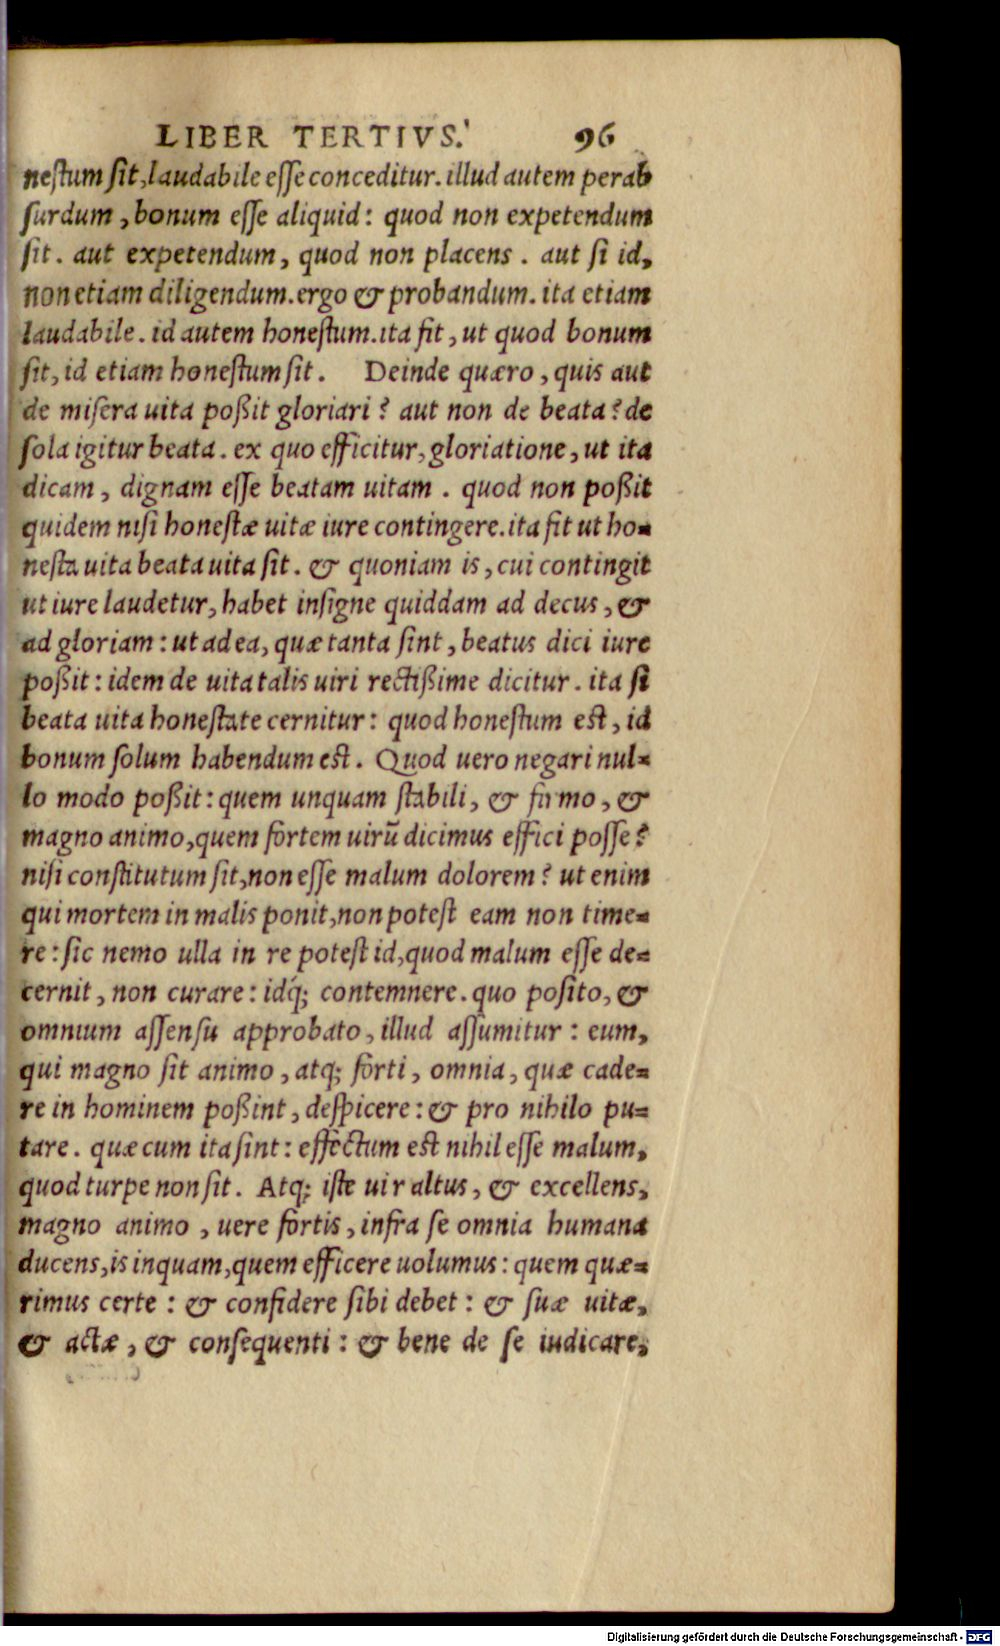 LIBER TERTIVS. 96
neſtum ſit, laudabile eſſe conceditur. illud autem perab
ſurdum, bonum eſſe aliquid: quod non expetendum
ſit. aut expetendum, quod non placens. aut ſi id,
non etiam diligendum. ergo & probandum. ita etiam
laudabile. id autem honeſtum. ita fit, ut quod bonum
ſit, id etiam honeſtum ſit. Deinde quæro, quis aut
de miſera uita poßit gloriari? aut non de beata? de
ſola igitur beata. ex quo efficitur, gloriatione, ut ita
dicam, dignam eſſe beatam uitam. quod non poßit
quidem niſi honeſtæ uitæ iure contingere. ita fit ut ho-
neſta uita beata uita ſit. & quoniam is, cui contingit
ut iure laudetur, habet inſigne quiddam ad decus, &
ad gloriam: ut ad ea, quæ tanta ſint, beatus dici iure
poßit: idem de uita talis uiri rectißime dicitur. ita ſi
beata uita honeſtate cernitur: quod honeſtum eſt, id
bonum ſolum habendum eſt. Quod uero negari nul-
lo modo poßit: quem unquam ſtabili, & firmo, &
magno animo, quem fortem uirũ dicimus effici poſſe?
niſi conſtitutum ſit, non eſſe malum dolorem? ut enim
qui mortem in malis ponit, non poteſt eam non time-
re: ſic nemo ulla in re poteſt id, quod malum eſſe de-
cernit, non curare: idq́; contemnere. quo poſito, &
omnium aſſenſu approbato, illud aſſumitur: eum,
qui magno ſit animo, atq; forti, omnia, quæ cade-
re in hominem poßint, deſpicere: & pro nihilo pu-
tare. quæ cum ita ſint: effectum eſt nihil eſſe malum,
quod turpe non ſit. Atq; iſte uir altus, & excellens,
magno animo, uere fortis, infra ſe omnia humana
ducens, is inquam, quem efficere uolumus: quem quæ-
rimus certe: & confidere ſibi debet: & ſuæ uitæ,
& actæ, & conſequenti: & bene de ſe iudicare,
Digitalisierung gefördert durch die Deutsche Forschungsgemeinschaft - DFG